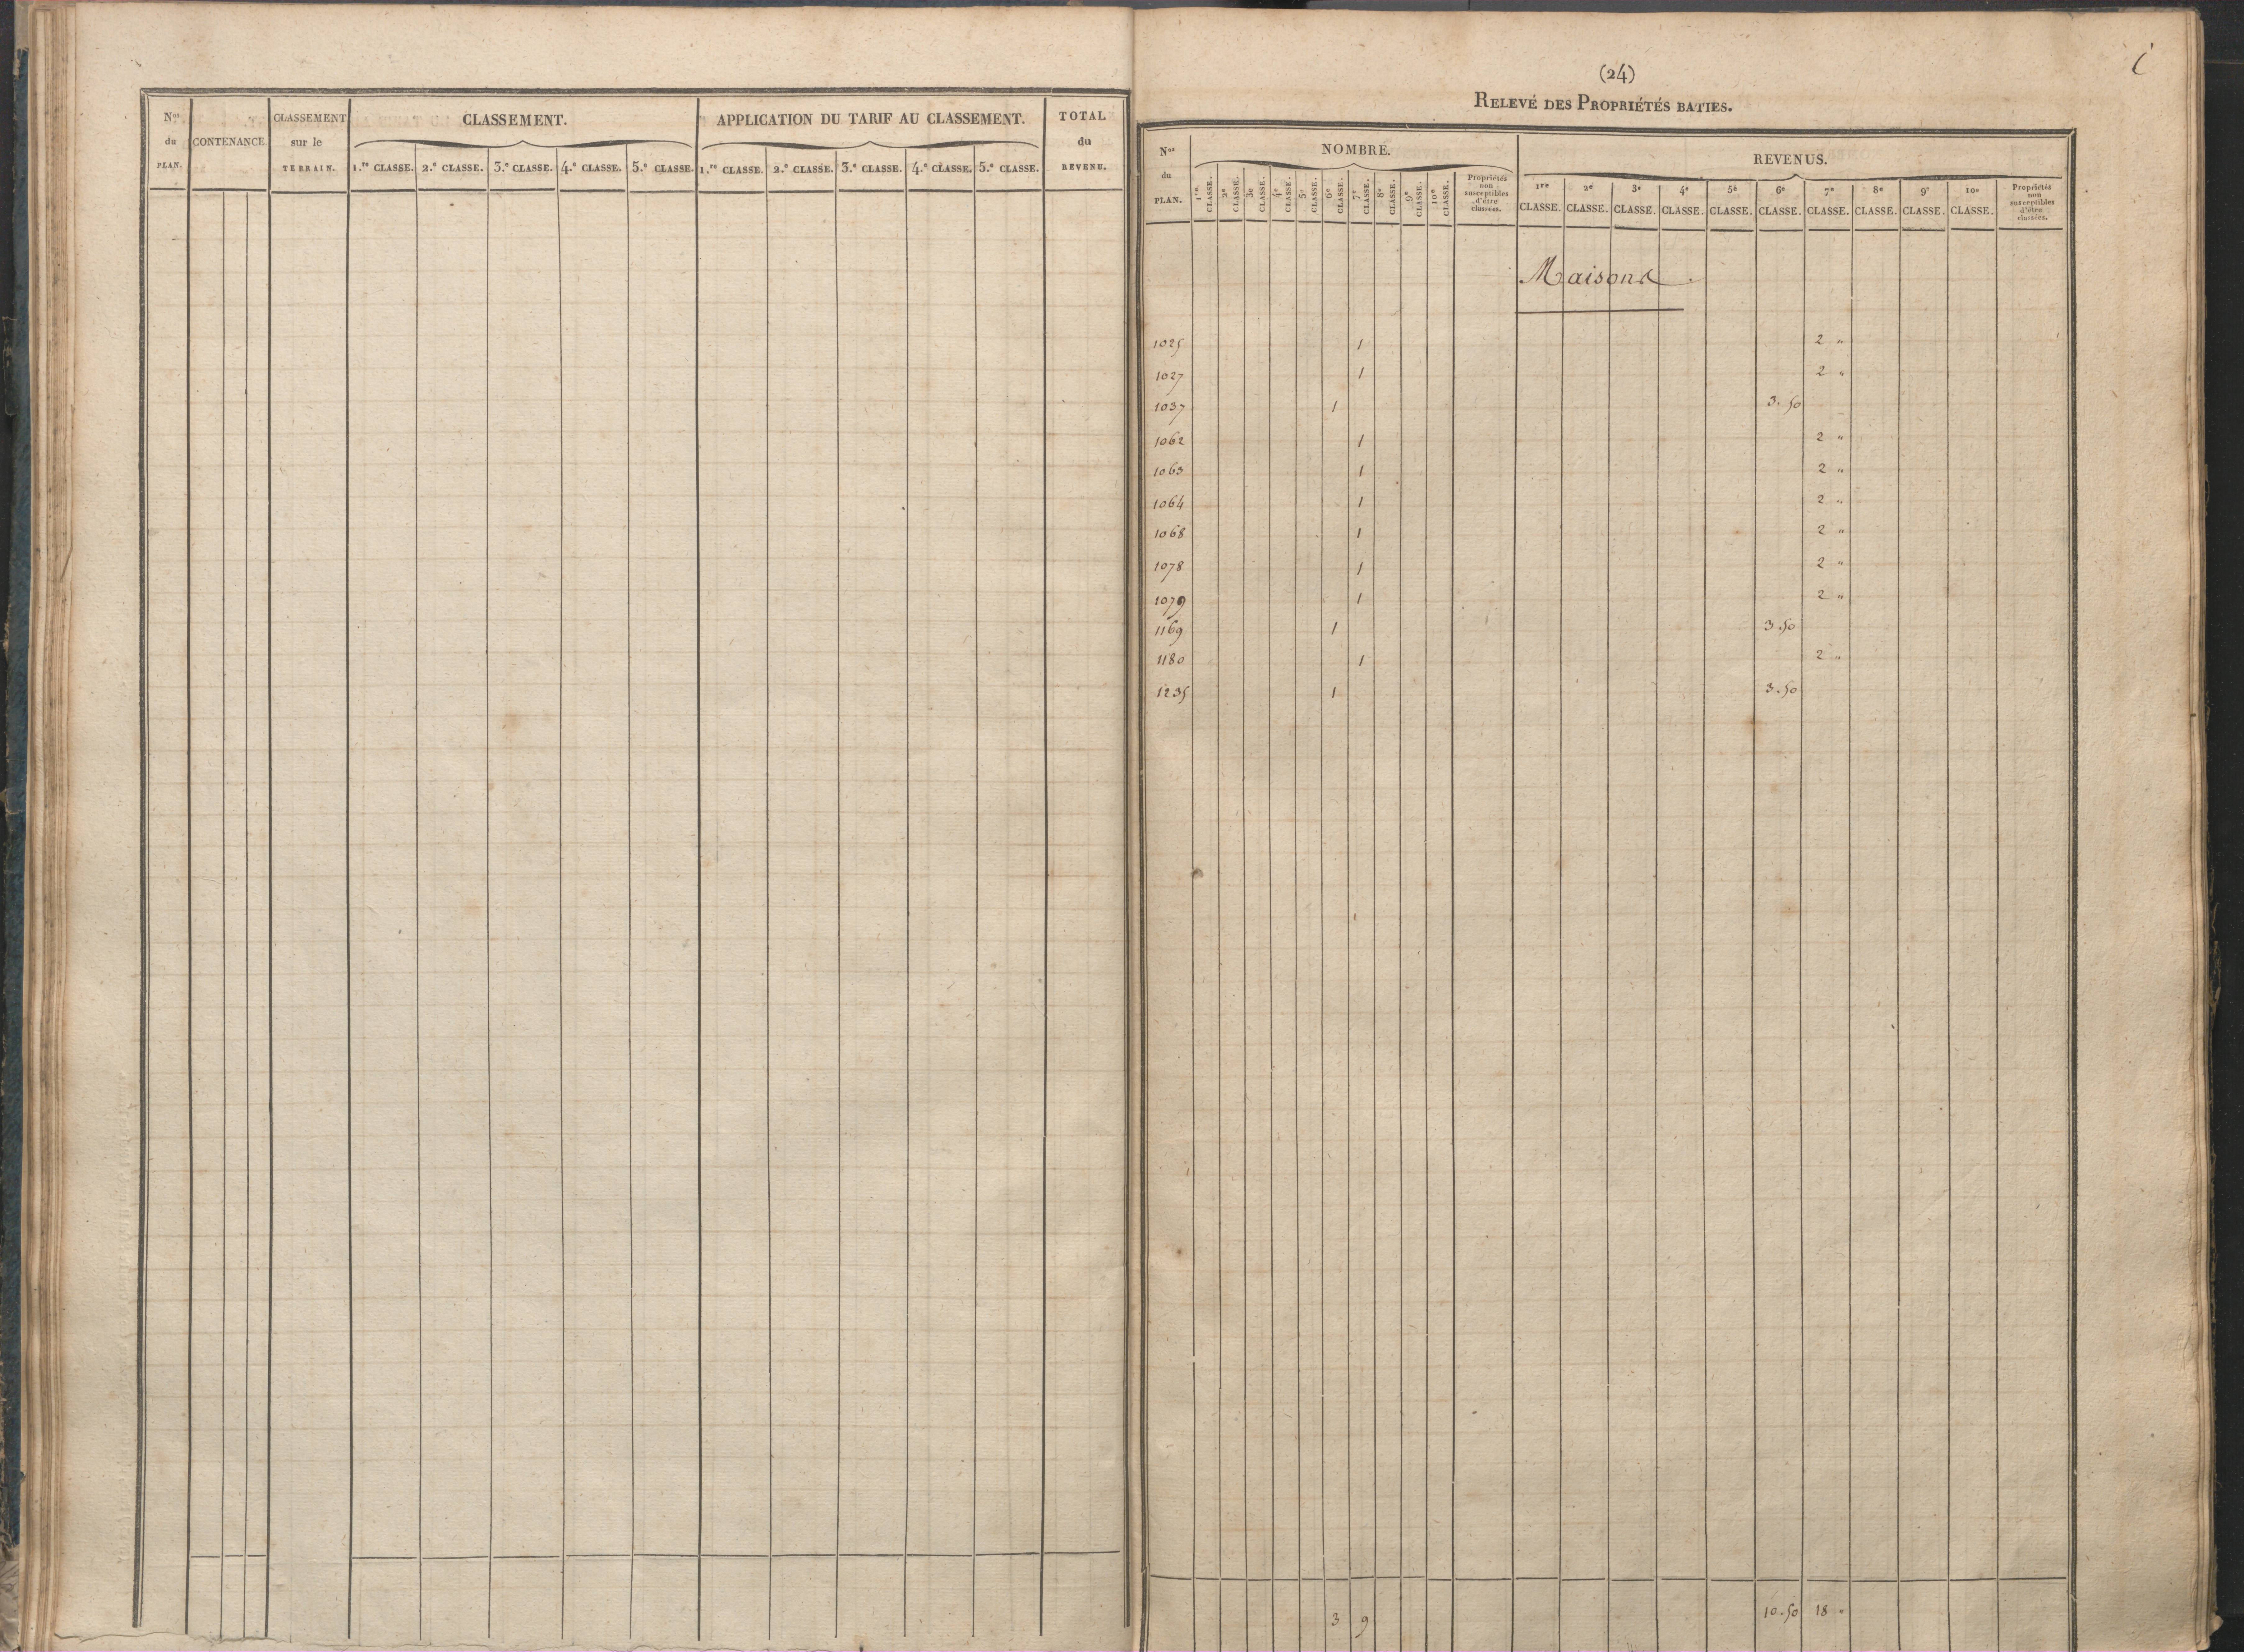 N.os du PLAN. CONTENANCE. CLASSEMENT sur le TERRAIN. CLASSEMENT. APPLICATION DU TARIF AU CLASSEMENT. TOTAL du REVENU.
1.re CLASSE. 2.e CLASSE. 3.e CLASSE. 4.e CLASSE. 5.e CLASSE. 1.re CLASSE. 2.e CLASSE. 3.e CLASSE. 4.e CLASSE. 5.e CLASSE.
(24)
RELEVÉ DES PROPRIÉTÉS BATIES.
N.os du PLAN. NOMBRE. REVENUS.
1re CLASSE. 2e CLASSE. 3e CLASSE. 4e CLASSE. 5e CLASSE. 6e CLASSE. 7e CLASSE. 8e CLASSE. 9e CLASSE. 10e CLASSE. Propriétés non susceptibles d'être classées. 1re CLASSE. 2e CLASSE. 3e CLASSE. 4e CLASSE. 5e CLASSE. 6e CLASSE. 7e CLASSE. 8e CLASSE. 9e CLASSE. 10e CLASSE. Propriétés non susceptibles d'être classées.
Maisons.
1025 1 2 "
1027 1 2 "
1037 1 3.50
1062 1 2 "
1063 1 2 "
1064 1 2 "
1068 1 2 "
1078 1 2 "
1079 1 2 "
1169 1 3.50
1180 1 2 "
1235 1 3.50
3 9 10.50 18 "